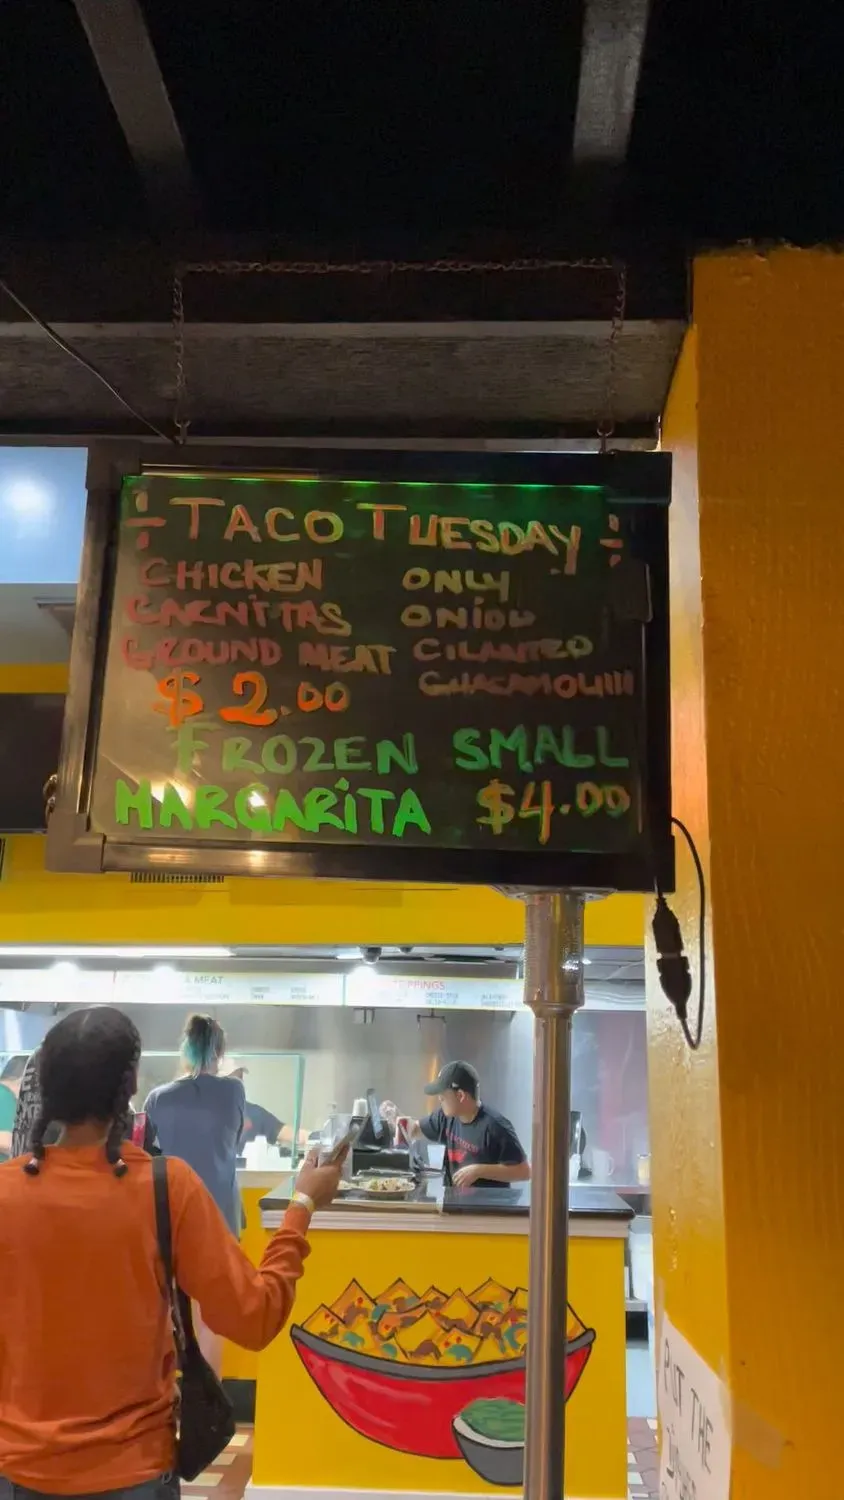 TACO TUESDAY
CHICKEN ONLY
CARNITAS ONION
GROUND MEAT CILANTRO
$2.00
FROZEN SMALL
MARGARITA $4.00
MEAT
PUT THE